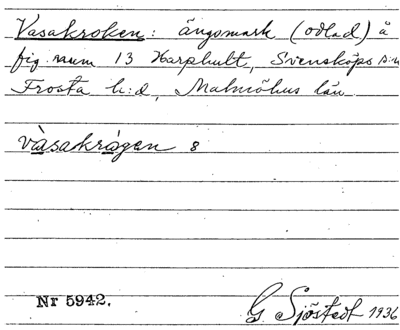 Vasakroken: ängsmark (odlad) å
fig. num 13 Harphult, Svensköps s:n
Frosta h:d, Malmöhus län.
vàsakrågen 8
Nr 5942.
G Sjöstedt 1936